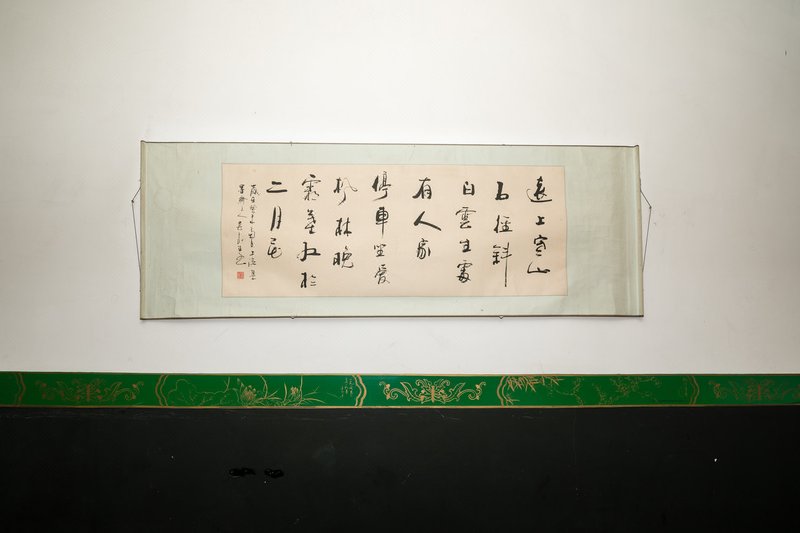 遠上寒山
石徑斜
白雲生處
有人家
停車坐愛
楓林晚
霜葉紅於
二月花